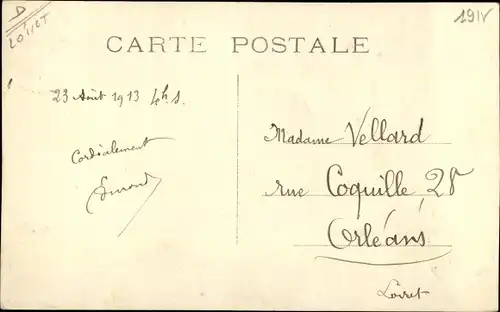 D
LOIRET
CARTE POSTALE
23 Août 1913 4h s.
Cordialement
Madame Vellard
rue Coquille, 28
Orléans
Loiret